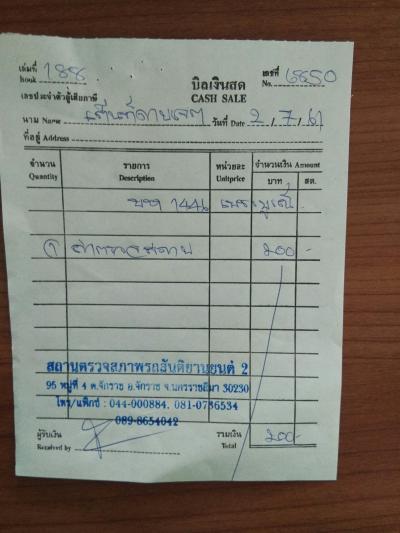 เล่มที่ book 188 เลขที่ No. 6850
บิลเงินสด
CASH SALE
เลขประจำตัวผู้เสียภาษี
นาม Name วันที่ Date 2 / 7 / 61
ที่อยู่ Address
จำนวน Quantity รายการ Description หน่วยละ Unitprice จำนวนเงิน Amount บาท สต.
1446
1 200 -
สถานตรวจสภาพรถสันติยานยนต์ 2
95 หมู่ที่ 4 ต.จักราช อ.จักราช จ.นครราชสีมา 30230
โทร/แฟ็กซ์ : 044-000884, 081-0736534
089-8654042
ผู้รับเงิน Received by รวมเงิน Total 200 -